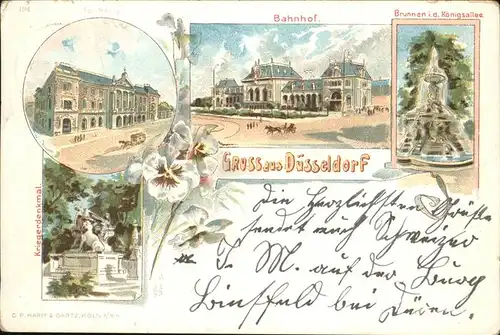 194
Bahnhof.
Brunnen i. d. Königsallee
Gruss aus Düsseldorf
Kriegerdenkmal.
Die herzlichsten Grüße
sendet euch Schweizer
J. M. auf der Burg
Binsfeld bei Düren.